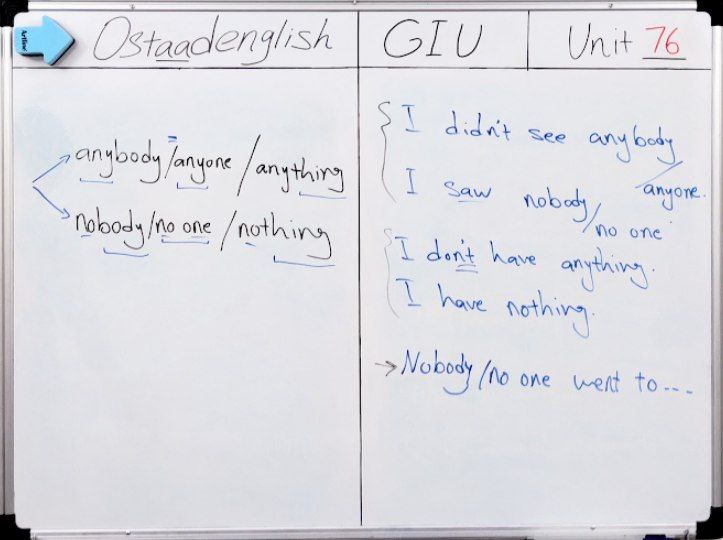 Ostaadenglish
GIU
Unit 76
anybody/anyone/anything
nobody/no one/nothing
I didn't see anybody
/anyone.
I saw nobody
/no one
I don't have anything.
I have nothing.
→Nobody/no one went to----